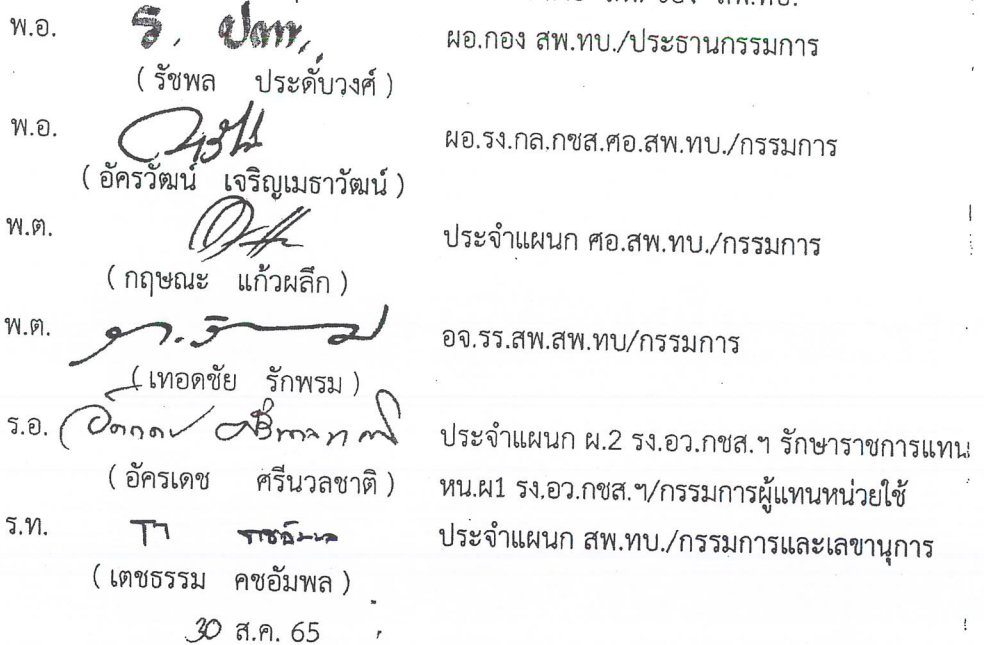 พ.อ. ผอ.กอง สพ.ทบ./ประธานกรรมการ
( รัชพล ประดับวงศ์ )
พ.อ. ผอ.รง.กล.กซส.ศอ.สพ.ทบ./กรรมการ
( อัครวัฒน์ เจริญเมธาวัฒน์ )
พ.ต. ประจำแผนก ศอ.สพ.ทบ./กรรมการ
( กฤษณะ แก้วผลึก )
พ.ต. อจ.รร.สพ.สพ.ทบ/กรรมการ
( เทอดชัย รักพรม )
ร.อ. ประจำแผนก ผ.2 รง.อว.กซส.ฯ รักษาราชการแทน
( อัครเดช ศรีนวลชาติ ) หน.ผ1 รง.อว.กซส.ฯ/กรรมการผู้แทนหน่วยใช้
ร.ท. ประจำแผนก สพ.ทบ./กรรมการและเลขานุการ
( เตชธรรม คชอัมพล )
30 ส.ค. 65